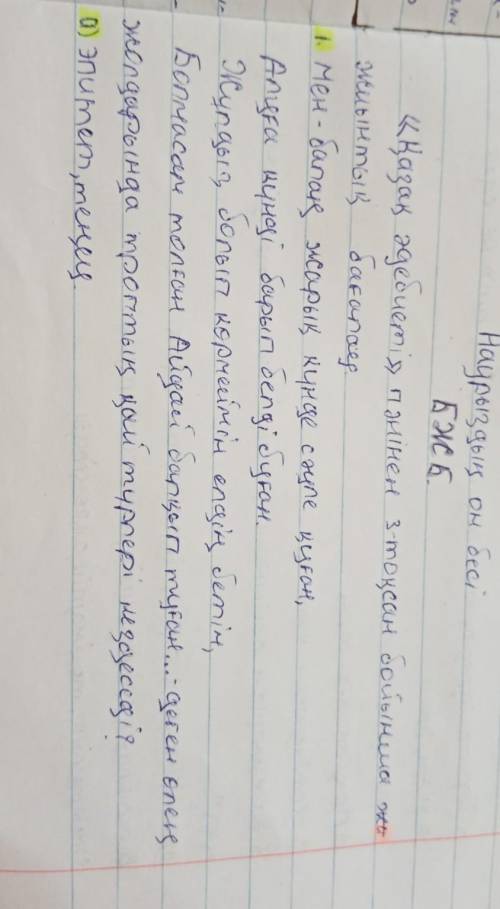 Наурыздың он бесі
БЖБ.
«Қазақ әдебиеті» пәнінен 3-тоқсан бойынша жи
жиынтық бағалау.
1. Мен - балаң жарық күнде сәуле қуған,
Алуға күнді барып белді буған.
Жұлдыз болып көрмеймін елдің бетін,
Болмасам толған Айдай балқып туған...- деген өлең
жолдарында троптың қай түрлері кездеседі?
а) эпитет, теңеу